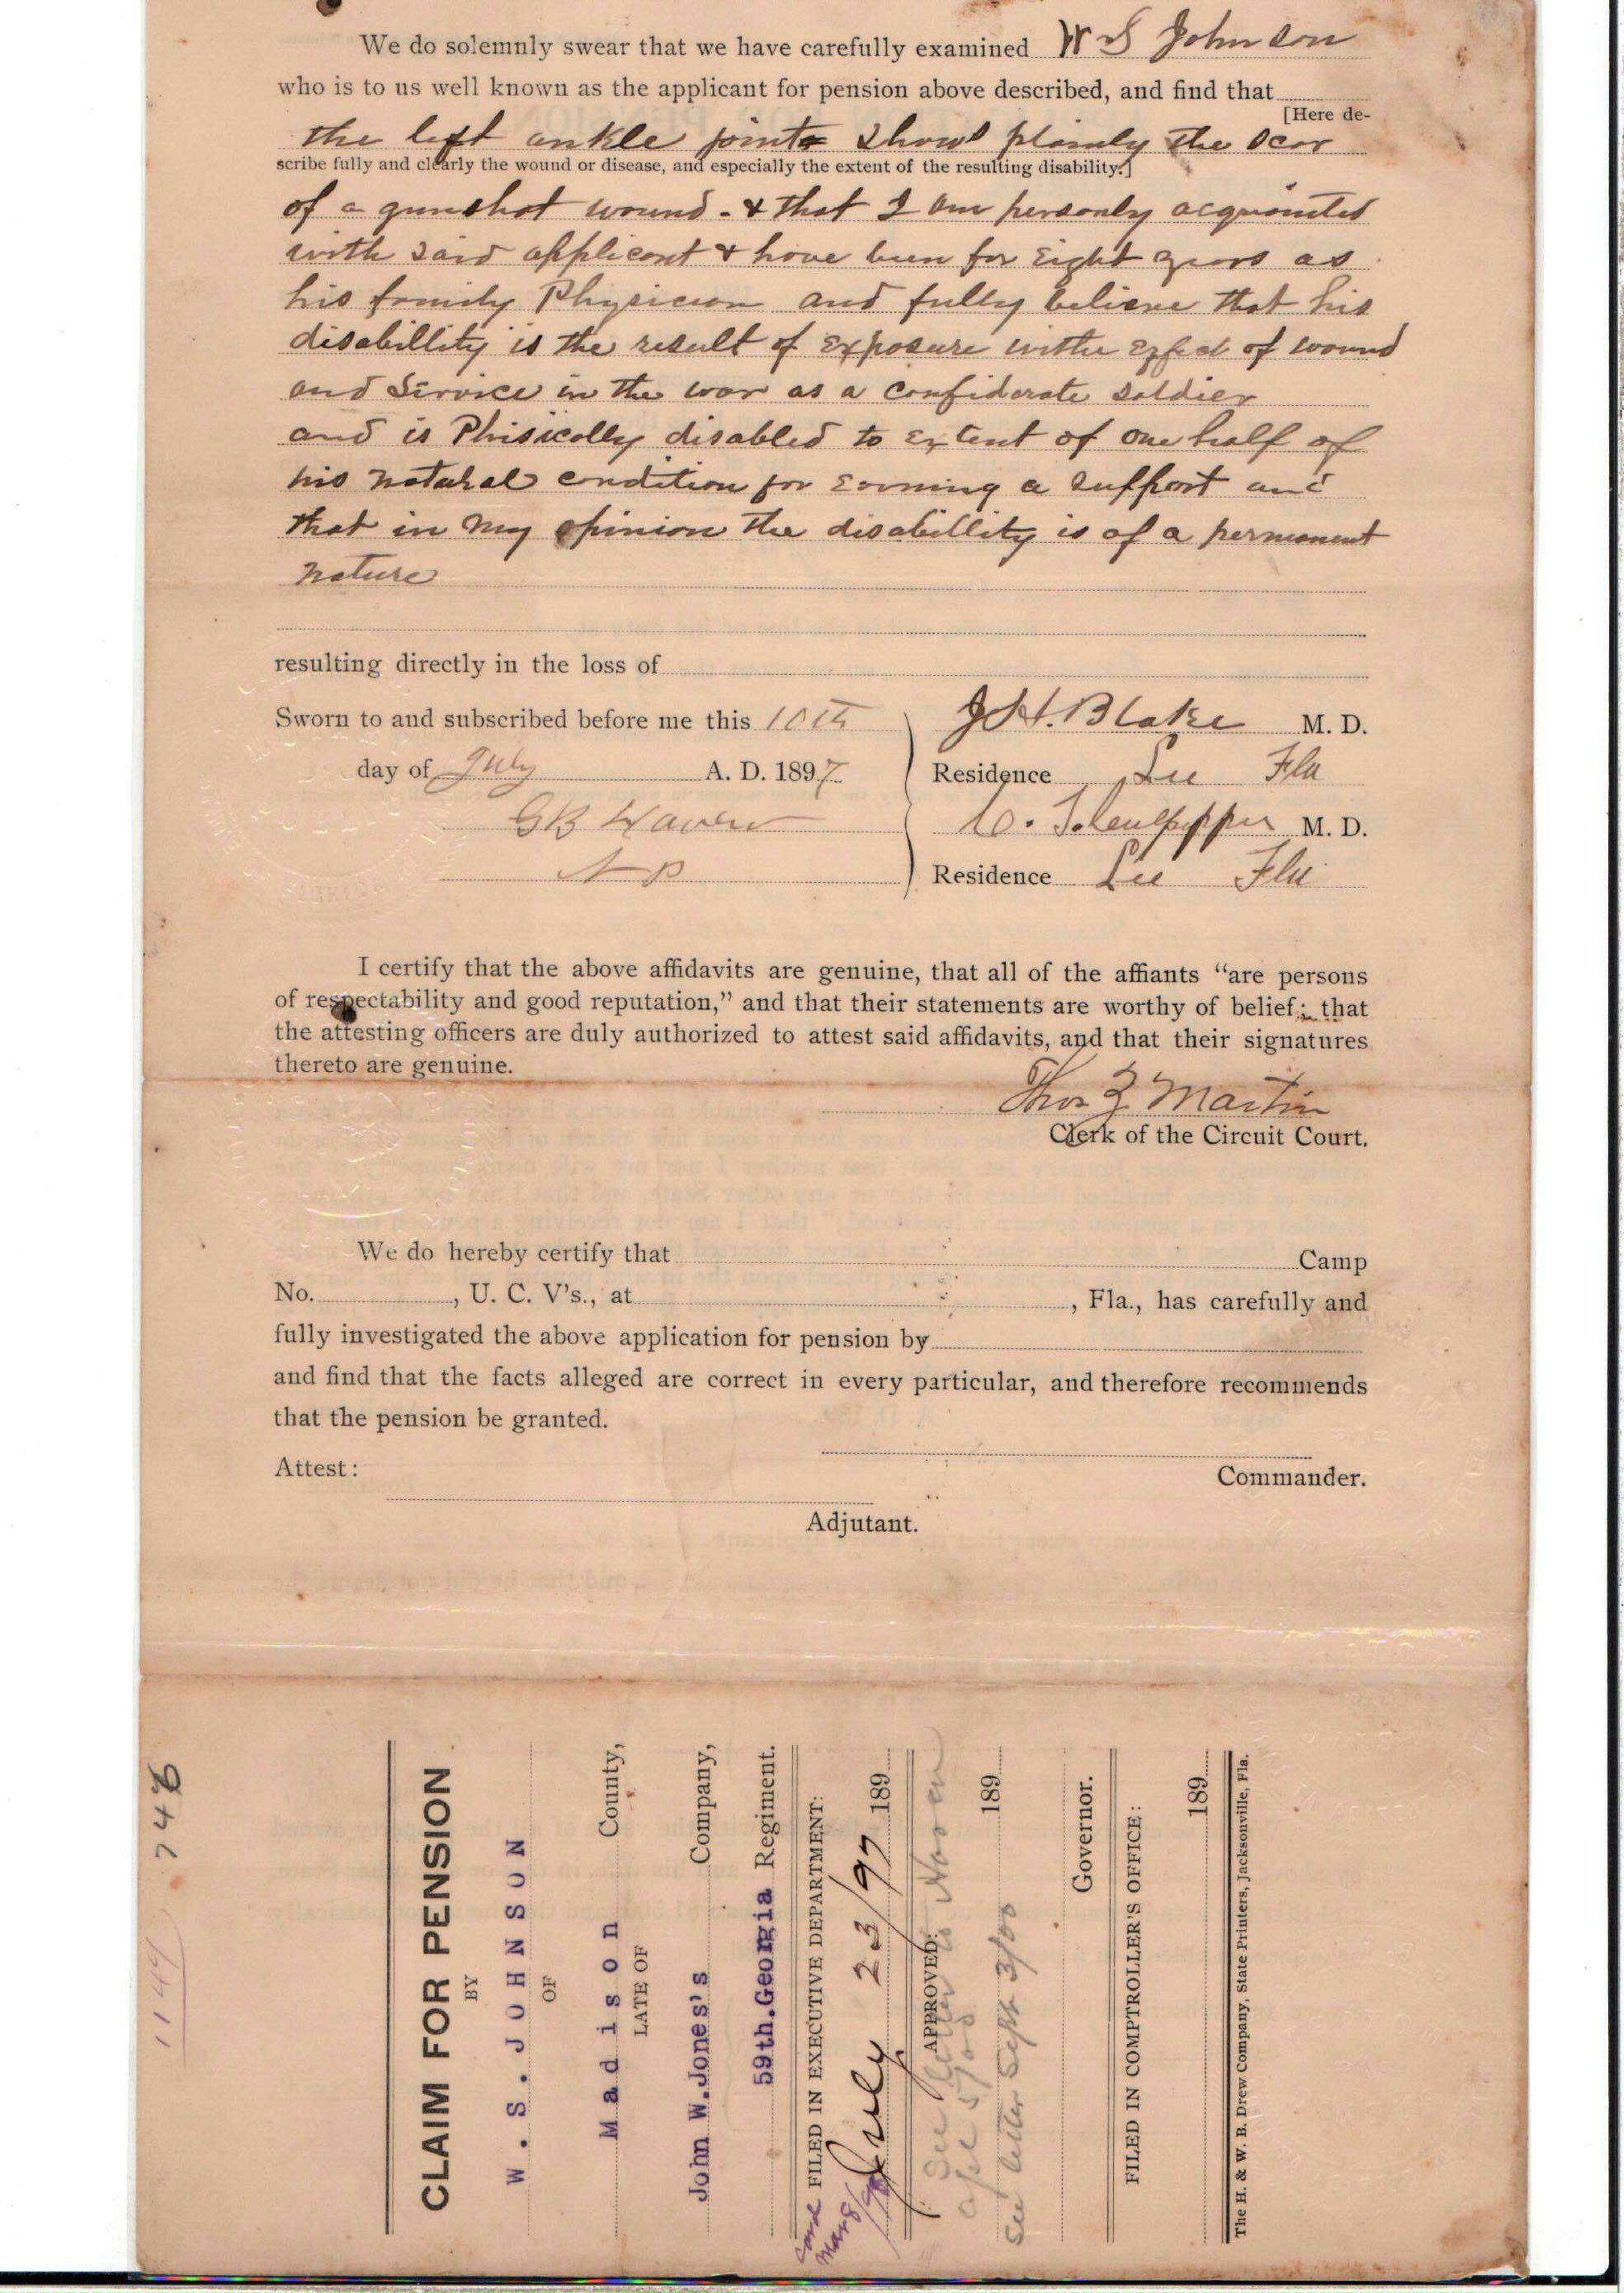 We do solemnly swear that we have carefully examined W S Johnson
who is to us well known as the applicant for pension above described, and find that
[Here de-
the left ankle joint show plainly the scar
scribe fully and clearly the wound or disease, and especially the extent of the resulting disability.]
of a gunshot wound - & that I am personly acquainted
with said applicant & have been for Eight years as
his family Physician and fully believe that his
disabillity is the result of Exposure withe Effect of wound
and Service in the war as a confiderate soldier
and is Phisically disabled to Extent of one half of
his natural condition for Earning a support and
that in my opinion the disabillity is of a permanent
nature
resulting directly in the loss of
Sworn to and subscribed before me this 10th
day of July A. D. 1897
J. H. Blake M. D.
Residence Lee Fla
Culpepper M. D.
N P
Residence Lee Fla
I certify that the above affidavits are genuine, that all of the affiants “are persons
of respectability and good reputation,” and that their statements are worthy of belief; that
the attesting officers are duly authorized to attest said affidavits, and that their signatures
thereto are genuine.
Thos Z Martin
Clerk of the Circuit Court.
We do hereby certify that Camp
No. , U. C. V's., at , Fla., has carefully and
fully investigated the above application for pension by
and find that the facts alleged are correct in every particular, and therefore recommends
that the pension be granted.
Attest:
Commander.
Adjutant.
1149
748
CLAIM FOR PENSION
BY
W. S. JOHNSON
OF
Madison County,
LATE OF
John W.Jones's Company,
59th.Georgia Regiment.
FILED IN EXECUTIVE DEPARTMENT:
July 23/97 189
APPROVED:
See letter to
189
See letter Sept 3/00
Governor.
FILED IN COMPTROLLER'S OFFICE:
189
The H. & W. B. Drew Company, State Printers, Jacksonville, Fla.